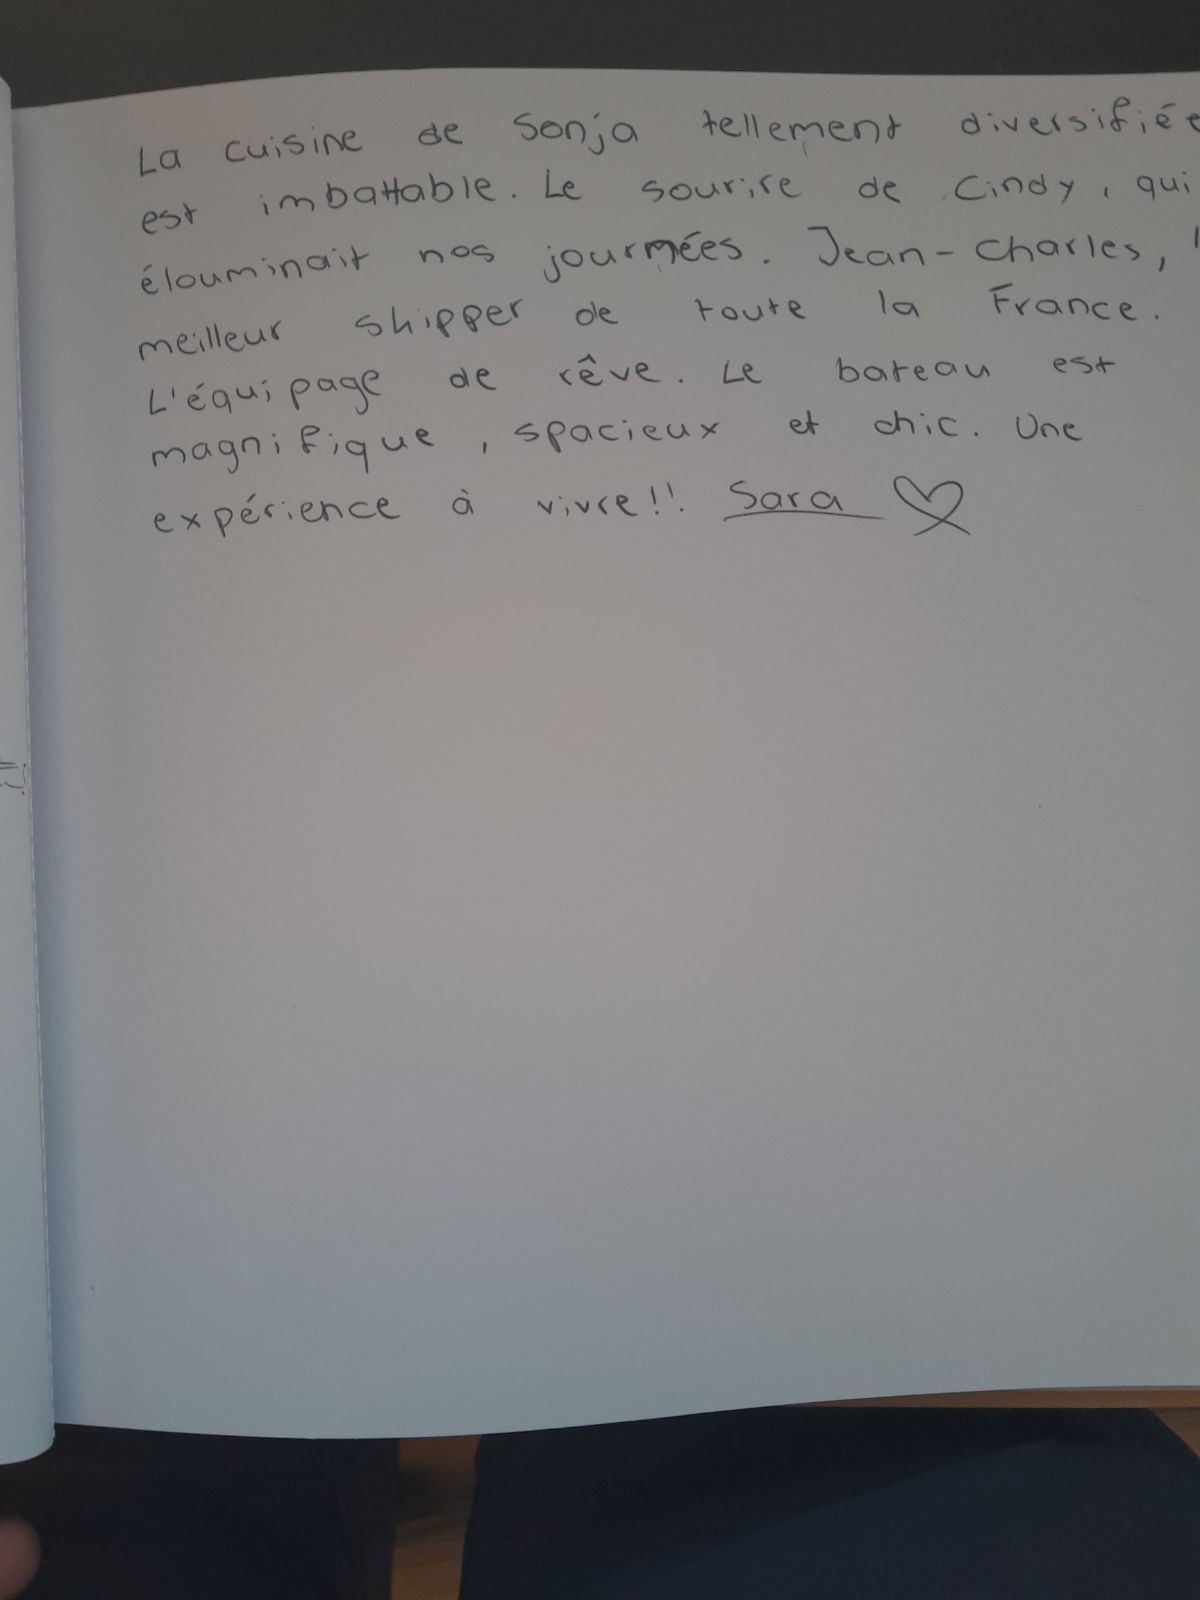 La cuisine de Sonja tellement diversifiée
est imbattable. Le sourire de Cindy, qui
élouminait nos journées. Jean-Charles,
meilleur shipper de toute la France.
L'équipage de rêve. Le bateau est
magnifique, spacieux et chic. Une
expérience à vivre!! Sara